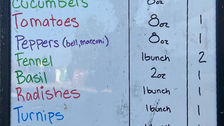 Cucumbers 8oz 1
Tomatoes 8oz 1
Peppers (bell, marconi) 8oz 1
Fennel 1bunch 2
Basil 2oz 1
Radishes 1bunch 1
Turnips 1bunch 1